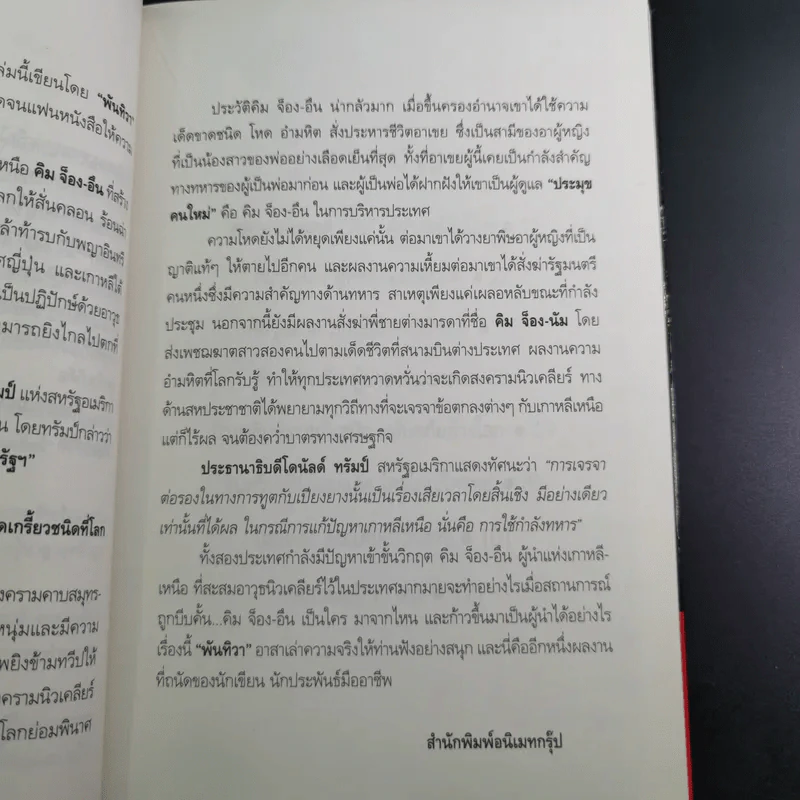 ล่มนี้เขียนโดย "พันทิวา"
จนแฟนหนังสือให้ความ
หนือ คิม จ็อง-อึน ที่สร้าง
ลกให้สั่นคลอน ร้อนฉ่า
ล้าท้ารบกับพญาอินทรี
ศญี่ปุ่น และเกาหลีใต้
เป็นปฏิปักษ์ด้วยอาวุธ
มารถยิงไกลไปตกที่
มป์ แห่งสหรัฐอเมริกา
น โดยทรัมป์กล่าวว่า
รัฐฯ"
ดเกรี้ยวชนิดที่โลก
งครามคาบสมุทร-
หนุ่มและมีความ
พยิงข้ามทวีปให้
งครามนิวเคลียร์
โลกย่อมพินาศ
ประวัติคิม จ็อง-อึน น่ากลัวมาก เมื่อขึ้นครองอำนาจเขาได้ใช้ความ
เด็ดขาดชนิด โหด อำมหิต สั่งประหารชีวิตอาเขย ซึ่งเป็นสามีของอาผู้หญิง
ที่เป็นน้องสาวของพ่ออย่างเลือดเย็นที่สุด ทั้งที่อาเขยผู้นี้เคยเป็นกำลังสำคัญ
ทางทหารของผู้เป็นพ่อมาก่อน และผู้เป็นพ่อได้ฝากฝังให้เขาเป็นผู้ดูแล "ประมุข
คนใหม่" คือ คิม จ็อง-อึน ในการบริหารประเทศ
ความโหดยังไม่ได้หยุดเพียงแค่นั้น ต่อมาเขาได้วางยาพิษอาผู้หญิงที่เป็น
ญาติแท้ๆ ให้ตายไปอีกคน และผลงานความเหี้ยมต่อมาเขาได้สั่งฆ่ารัฐมนตรี
คนหนึ่งซึ่งมีความสำคัญทางด้านทหาร สาเหตุเพียงแค่เผลอหลับขณะที่กำลัง
ประชุม นอกจากนี้ยังมีผลงานสั่งฆ่าพี่ชายต่างมารดาที่ชื่อ คิม จ็อง-นัม โดย
ส่งเพชฌฆาตสาวสองคนไปตามเด็ดชีวิตที่สนามบินต่างประเทศ ผลงานความ
อำมหิตที่โลกรับรู้ ทำให้ทุกประเทศหวาดหวั่นว่าจะเกิดสงครามนิวเคลียร์ ทาง
ด้านสหประชาชาติได้พยายามทุกวิถีทางที่จะเจรจาข้อตกลงต่างๆ กับเกาหลีเหนือ
แต่ก็ไร้ผล จนต้องคว่ำบาตรทางเศรษฐกิจ
ประธานาธิบดีโดนัลด์ ทรัมป์ สหรัฐอเมริกาแสดงทัศนะว่า "การเจรจา
ต่อรองในทางการทูตกับเปียงยางนั้นเป็นเรื่องเสียเวลาโดยสิ้นเชิง มีอย่างเดียว
เท่านั้นที่ได้ผล ในกรณีการแก้ปัญหาเกาหลีเหนือ นั่นคือ การใช้กำลังทหาร"
ทั้งสองประเทศกำลังมีปัญหาเข้าขั้นวิกฤต คิม จ็อง-อึน ผู้นำแห่งเกาหลี-
เหนือ ที่สะสมอาวุธนิวเคลียร์ไว้ในประเทศมากมายจะทำอย่างไรเมื่อสถานการณ์
ถูกบีบคั้น...คิม จ็อง-อึน เป็นใคร มาจากไหน และก้าวขึ้นมาเป็นผู้นำได้อย่างไร
เรื่องนี้ "พันทิวา" อาสาเล่าความจริงให้ท่านฟังอย่างสนุก และนี่คืออีกหนึ่งผลงาน
ที่ถนัดของนักเขียน นักประพันธ์มืออาชีพ
สำนักพิมพ์อนิเมทกรุ๊ป